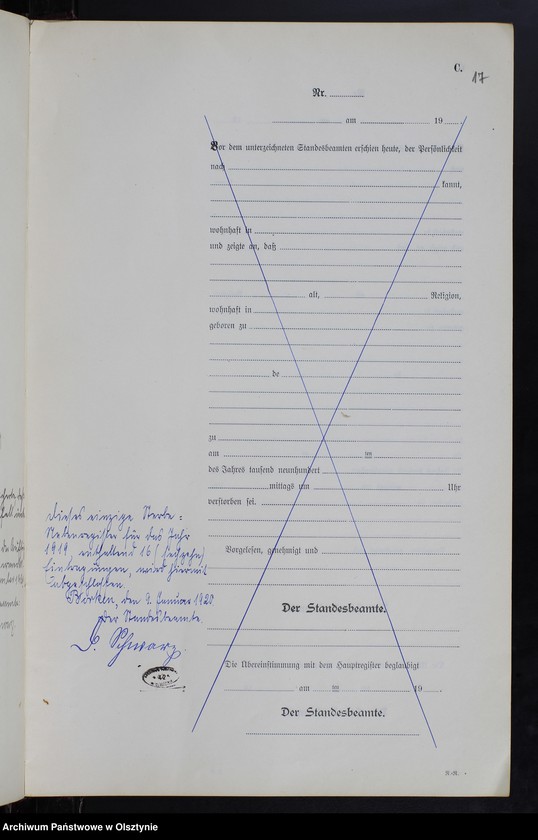 C.
17
Nr.
am 19
Vor dem unterzeichneten Standesbeamten erschien heute, der Persönlichkeit
nach
kannt,
wohnhaft in
und zeigte an, daß
alt, Religion,
wohnhaft in
geboren zu
de
zu
am ten
des Jahres tausend neunhundert
mittags um Uhr
verstorben sei.
Dieses einzige Sterbe-
Nebenregister für das Jahr
1919, enthaltend 16 (sechzehn)
Eintragungen, wird hiermit
abgeschlossen.
den 9. Januar 1920
Der Standesbeamte.
Schwarz
Vorgelesen, genehmigt und
Der Standesbeamte.
Die Übereinstimmung mit dem Hauptregister beglaubigt
am ten 19
Der Standesbeamte.
Archiwum Państwowe w Olsztynie